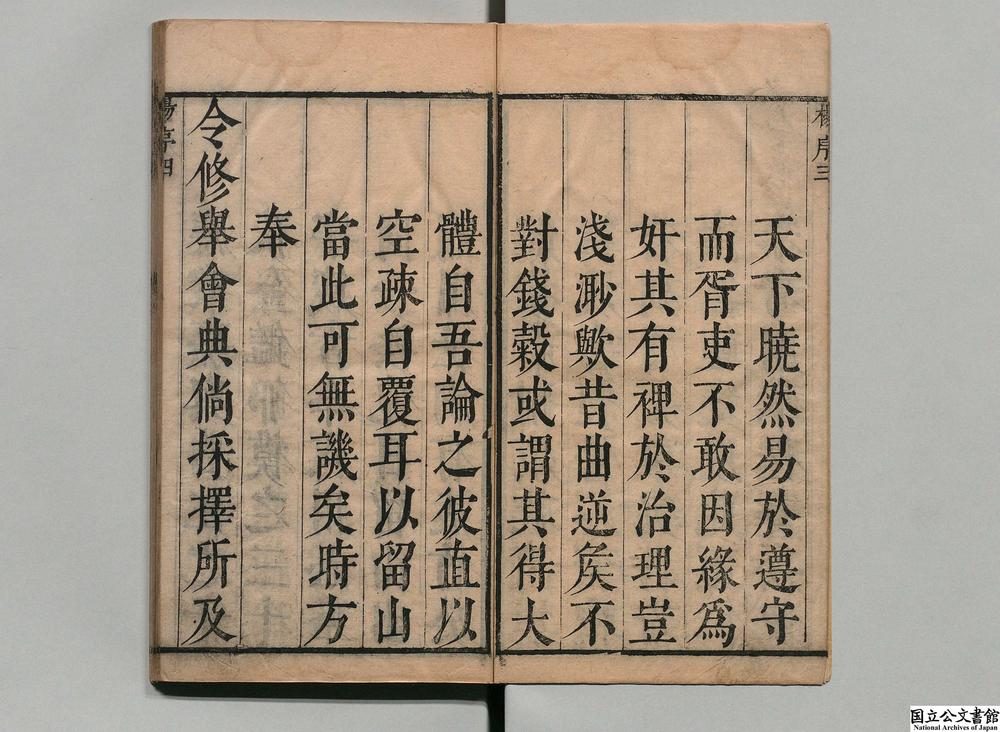 楊序三
天下曉然易於遵守
而胥吏不敢因緣爲
奸其有裨於治理豈
淺渺歟昔曲逆矦不
對錢糓或謂其得大
體自吾論之彼直以
空疎自覆耳以留山
當此可無譏矣時方
奉
令修舉會典倘採擇所及
楊序四
国立公文書館
National Archives of Japan